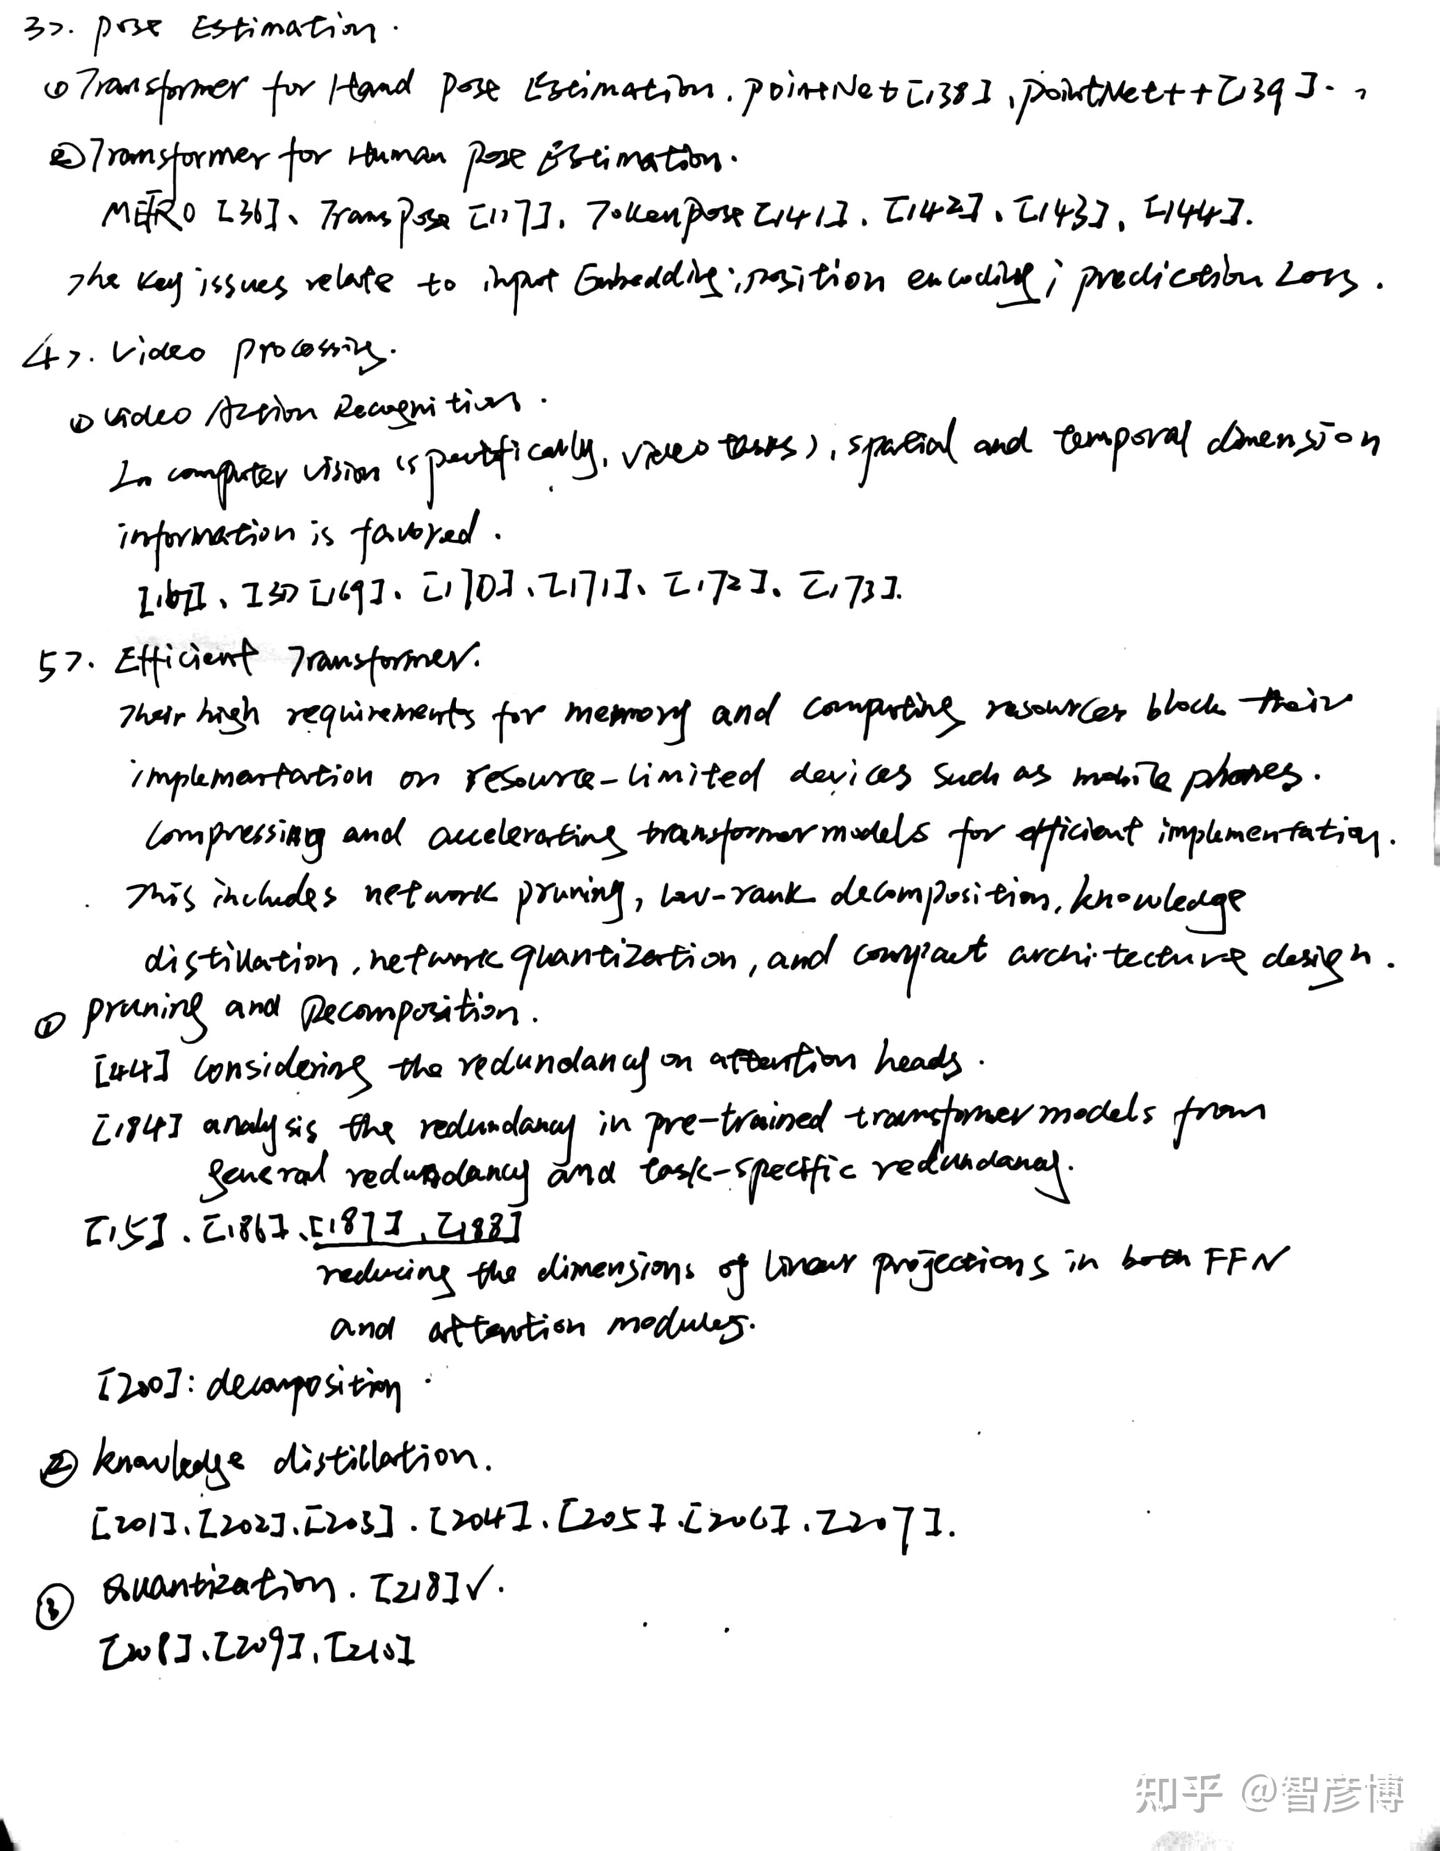 3>. Pose Estimation.
① Transformer for Hand Pose Estimation. PointNet[138], PointNet++[139].
② Transformer for Human Pose Estimation.
METRO [36]、TransPose [117]、TokenPose[141]、[142]、[143]、[144].
The key issues relate to input Embedding; position encoding; prediction Loss.
4>. Video processing.
① Video Action Recognition.
In computer vision (specifically, video tasks), spatial and temporal dimension
information is favored.
I3D [169]、[170]、[171]、[172]、[173].
5>. Efficient Transformer.
Their high requirements for memory and computing resources block their
implementation on resource-limited devices such as mobile phones.
Compressing and accelerating transformer models for efficient implementation.
This includes network pruning, low-rank decomposition, knowledge
distillation, network quantization, and compact architecture design.
① Pruning and Decomposition.
[44] Considering the redundancy on attention heads.
[184] analysis the redundancy in pre-trained transformer models from
general redundancy and task-specific redundancy.
[15]、[186]、[187]、[188]
reducing the dimensions of linear projections in both FFN
and attention modules.
[200]: decomposition
② knowledge distillation.
[201]、[202]、[203]、[204]、[205]、[206]、[207].
③ Quantization. [218]✓.
[208]、[209]、[210]
知乎 @智彦博